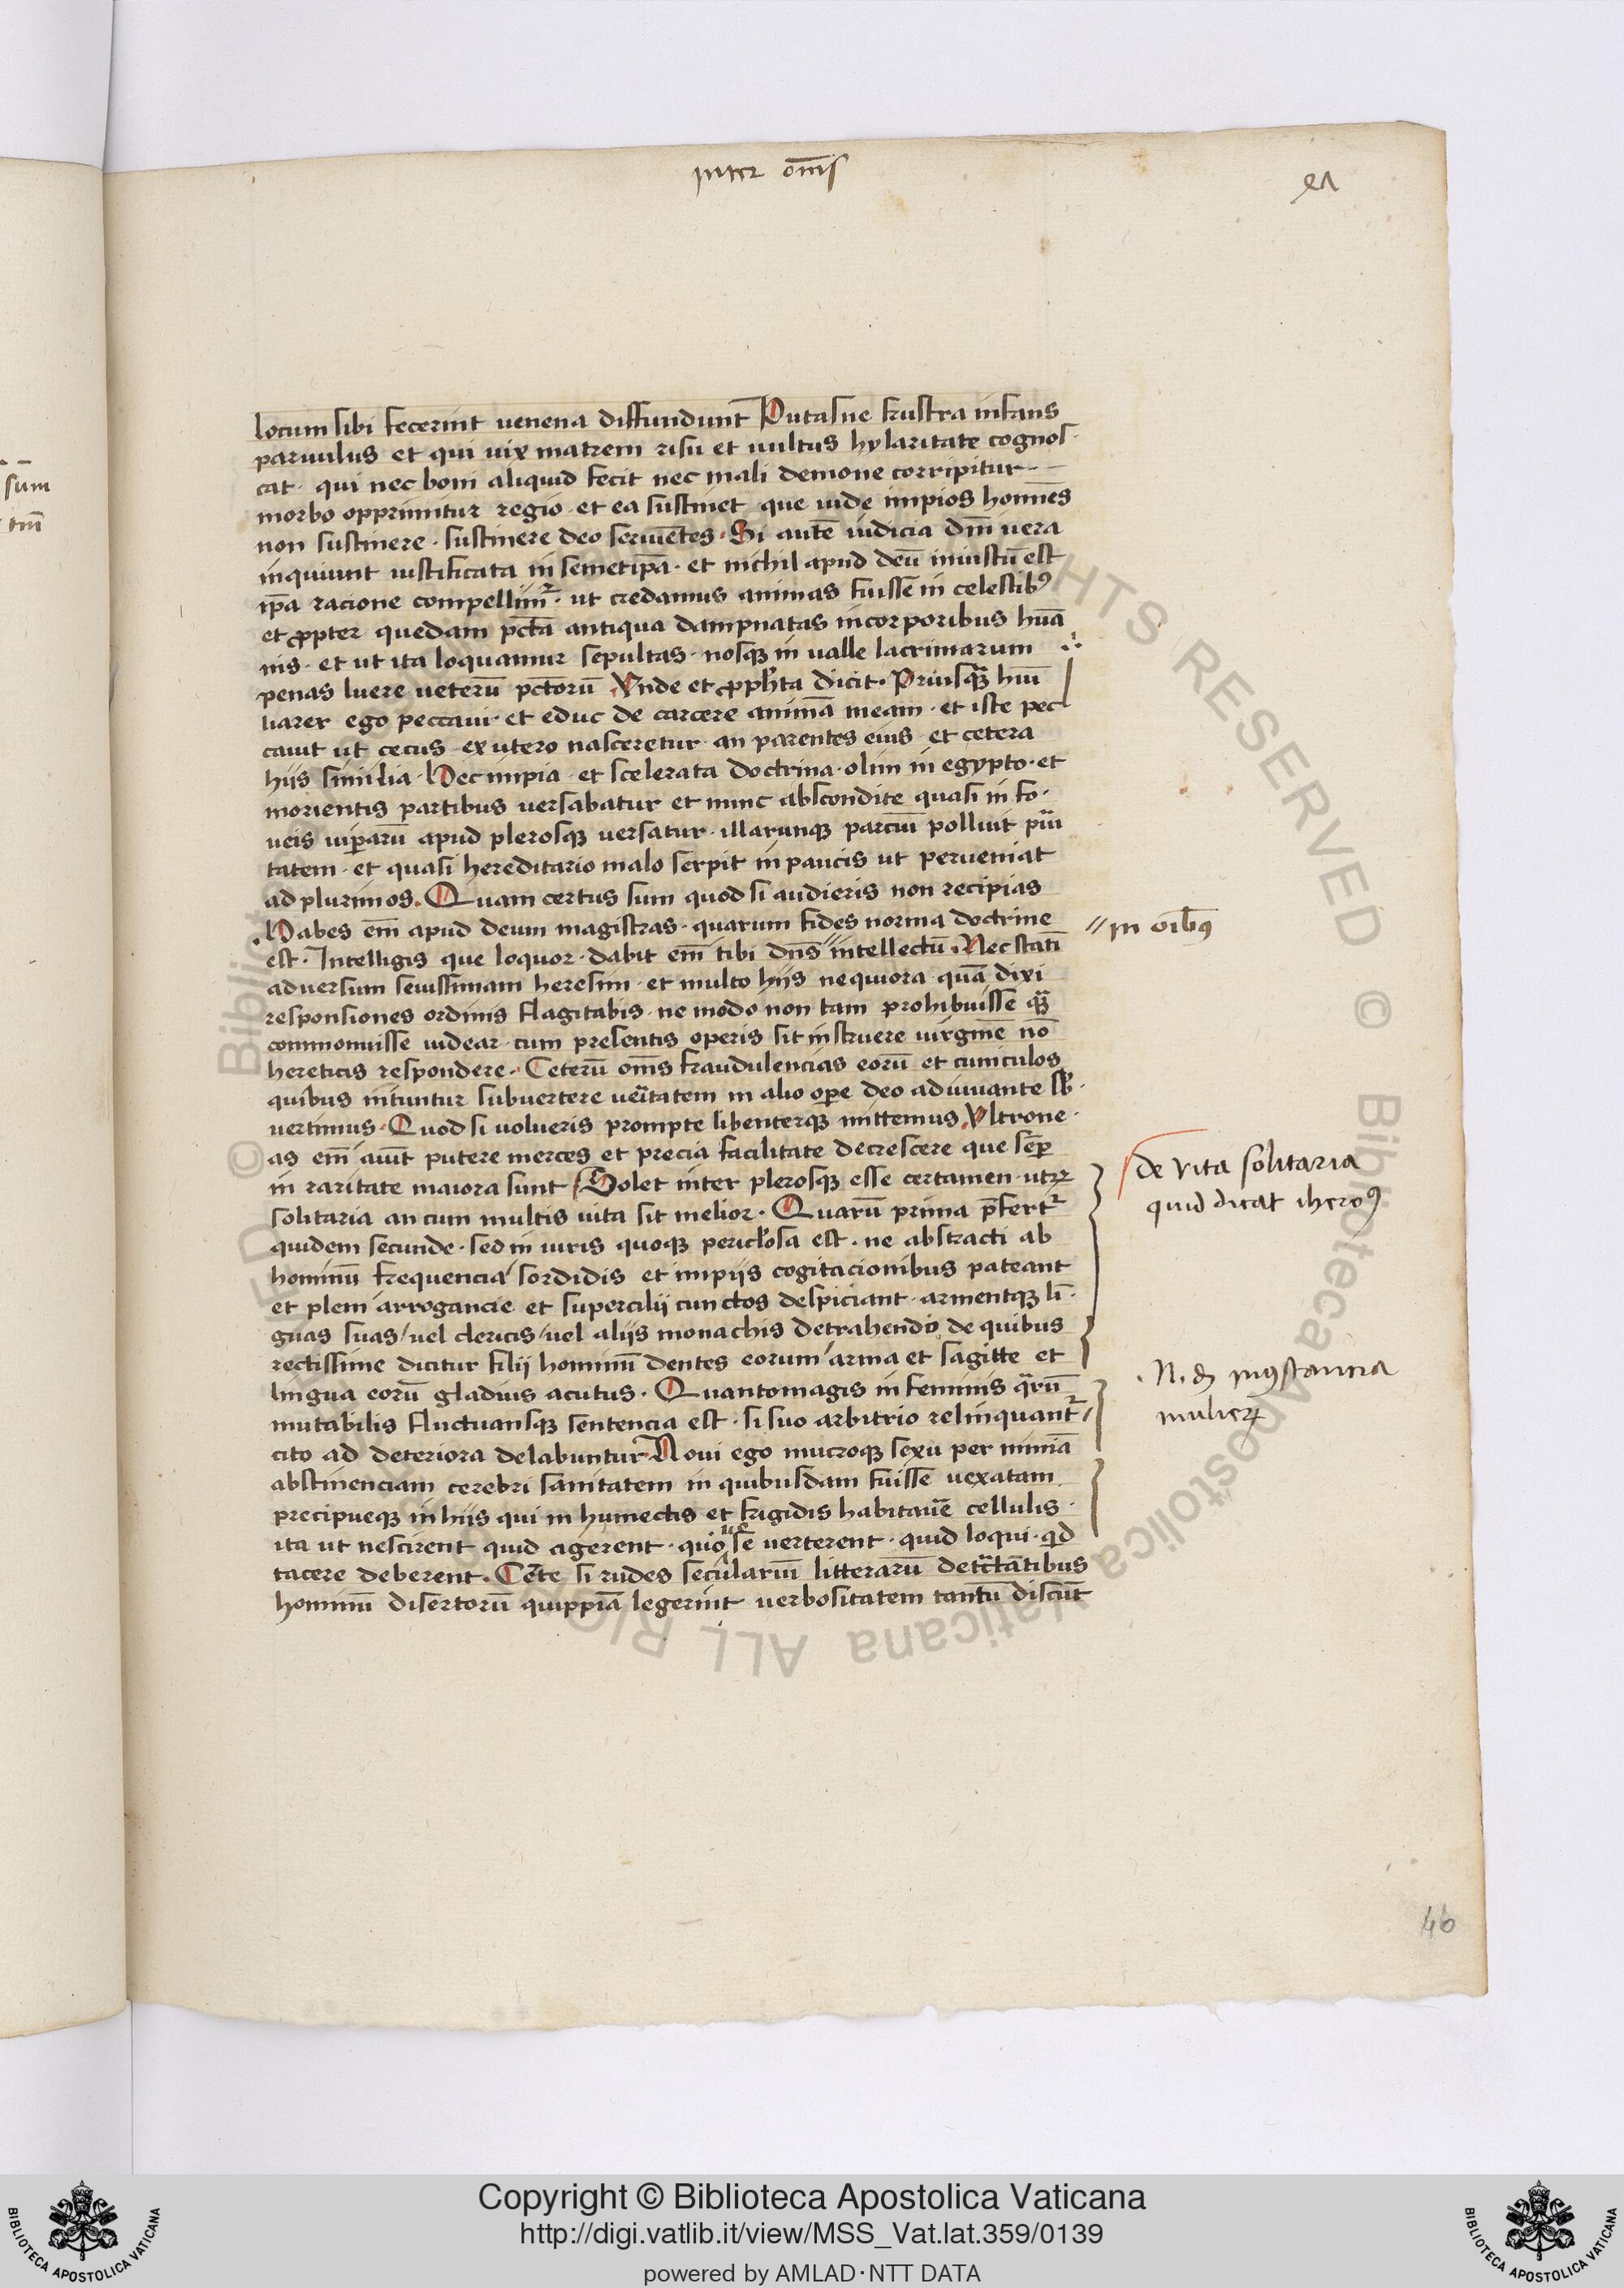 inter om̄s
locum sibi fecerint uenena diffundunt Putasne frustra infans
paruulus et qui uix matrem risu et uultus hylaritate cognos·
cat· qui nec boni aliquid fecit nec mali demone corripitur
morbo opprimitur regio· et ea sustinet que uide impios homīes
non sustinere· sustinere deo seruiētes· Si autē iudicia dm̄ uera
inquiunt iustificata in semetip̄a· et nichil apud deū iniustū est
ip̄a racione compellimr̄· ut credamus animas fuisse in celestibꝰ
et ꝓpter quedam pctā antiqua dampnatas in corporibus huā
nis· et ut ita loquamur sepultas· nosqꝫ in ualle lacrimarum
penas luere ueterū pctorū Vnde et ꝓpheta dicit· Priusqꝫ hūi
liarer ego peccaui· et educ de carcere animā meam· et iste pec
cauit ut cecus ex utero nasceretur an parentes eius et cetera
hijs similia· Hec impia et scelerata doctrina· olim in egypto· et
in orientis partibus uersabatur et nunc abscondite quasi in fo·
ueis uiꝑarū apud plerosqꝫ uersatur· illarunqꝫ parciū polluit pūi
tatem· et quasi hereditario malo serpit in paucis ut perueniat
ad plurimos. Quam certus sum quod si audieris non recipias
Habes em̄ apud deum magistras· quarum fides norma doctrine
est· Intelligis que loquor· dabit em̄ tibi dn̄s // intellectū. Nec statī
aduersum seuissimam heresim· et multo hijs nequiora quā dixi
responsiones ordinis flagitabis· ne modo non tam prohibuisse qꝫ
commonuisse uidear· cum presentis operis sit instruere uirginē nō
hereticis respondere· Ceterū om̄s fraudulencias eorū et cuniculos
quibus nituntur subuertere ueritatem in alio oꝑe deo adiuuante sb·
uertimus· Quod si uolueris prompte libenterqꝫ mittemus. Vltrone·
as em̄ aiūt putere merces et precia facilitate decrescere que sēꝑ
in raritate maiora sunt Solet inter plerosqꝫ esse certamen· utꝝ
solitaria an cum multis uita sit melior· Quarū prima p̄fertr̄
quidem secunde· sed in uiris quoqꝫ periclosa est· ne abstracti ab
hominū frequencia / sordidis et impijs cogitacionibus pateant
et pleni arrogancie et supercilij cunctos despiciant· armentqꝫ lī·
guas suas / uel clericis / uel alijs monachis detrahendo de quibus
rectissime dicitur filij hominū dentes eorum / arma et sagitte et
lingua eorū gladius acutus· Quantomagis in feminis qarū
mutabilis fluctuansqꝫ sentencia est· si suo arbitrio relinquantr̄ /
cito ad deteriora delabuntur Noui ego in utroqꝫ sexu per nimiā
abstinenciam cerebri sanitatem in quibusdam fuisse uexatam
precipueqꝫ in hijs qui in humectis et frigidis habitauē cellulis·
ita ut nescirent quid agerent· quo ue se uerterent· quid loqui· qd
tacere deberent. Certe si rudes seculariū litterarū de tractātibus
hominū disertorū quippiā legerint uerbositatem tantū discūt
// in oībꝰ
de vita solitaria
quid dicat iheroꝰ
. N. de inꝯstancia
mulieꝝ
46
sum
Copyright © Biblioteca Apostolica Vaticana
http://digi.vatlib.it/view/MSS_Vat.lat.359/0139
powered by AMLAD·NTT DATA
BIBLIOTECA APOSTOLICA VATICANA
BIBLIOTECA APOSTOLICA VATICANA
© Biblioteca Apostolica Vaticana ALL RIGHTS RESERVED